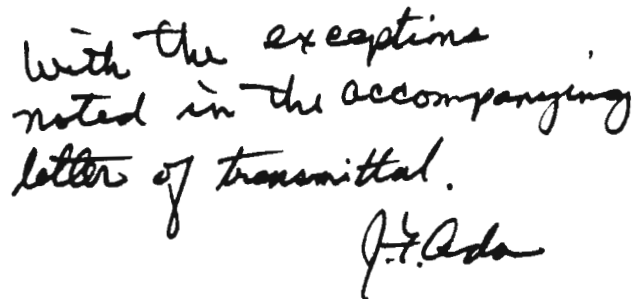 With the exceptions
noted in the accompanying
letter of transmittal.
J.F. Ada